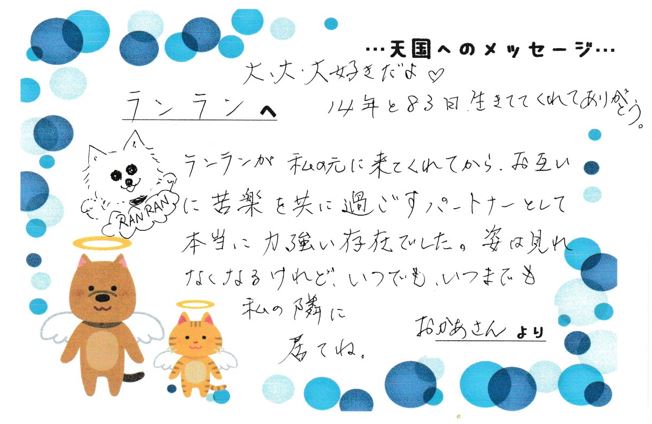 …天国へのメッセージ…
大・大・大好きだよ♡
ランランへ
14年と83日生きててくれてありがとう。
ランランが私の元に来てくれてから、お互い
に苦楽を共に過ごすパートナーとして
本当に力強い存在でした。姿は見れ
なくなるけれど、いつでも、いつまでも
私の隣に
居てね。
RAN RAN
おかあさんより